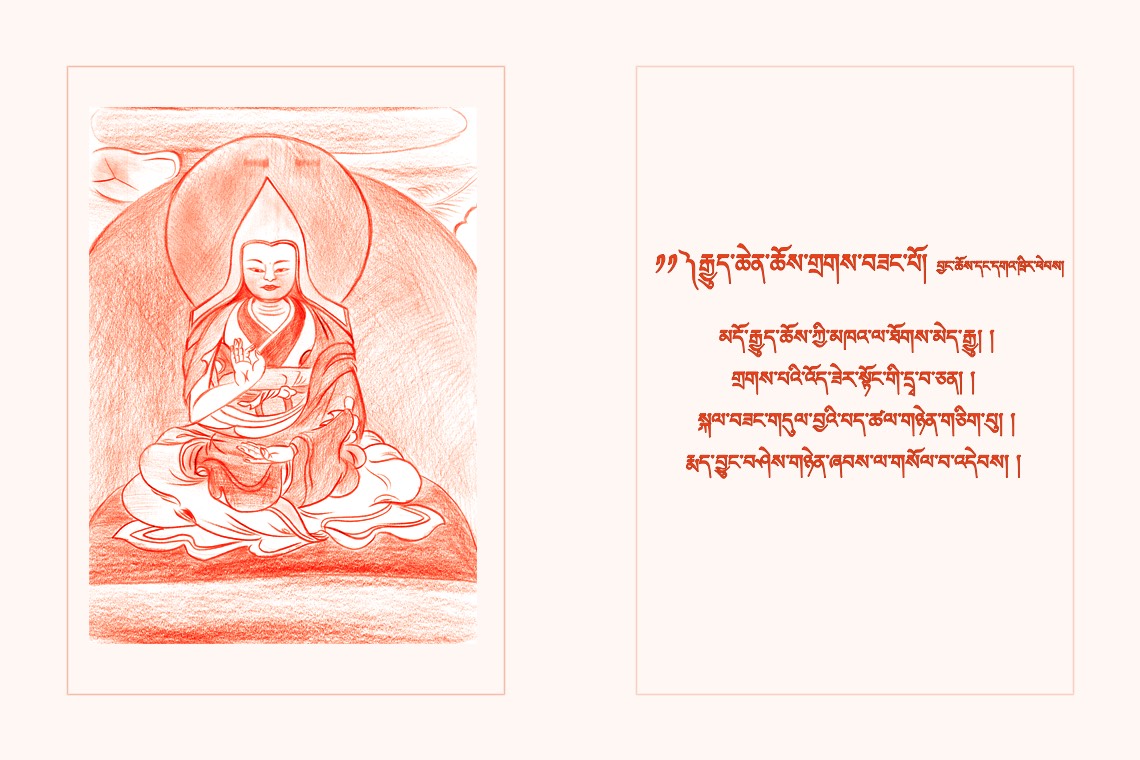 ༡༡ ༽རྒྱུད་ཆེན་ཆོས་གྲགས་བཟང་པོ། བྱང་ཆོས་དང་དགའ་ཁྲིར་ཕེབས།
མདོ་རྒྱུད་ཆོས་ཀྱི་མཁའ་ལ་ཐོགས་མེད་རྒྱུ། །
གྲགས་པའི་འོད་ཟེར་སྟོང་གི་དྲྭ་བ་ཅན། །
སྐལ་བཟང་གདུལ་བྱའི་པད་ཚལ་གཉེན་གཅིག་པུ། །
རྨད་བྱུང་བཤེས་གཉེན་ཞབས་ལ་གསོལ་བ་འདེབས། །